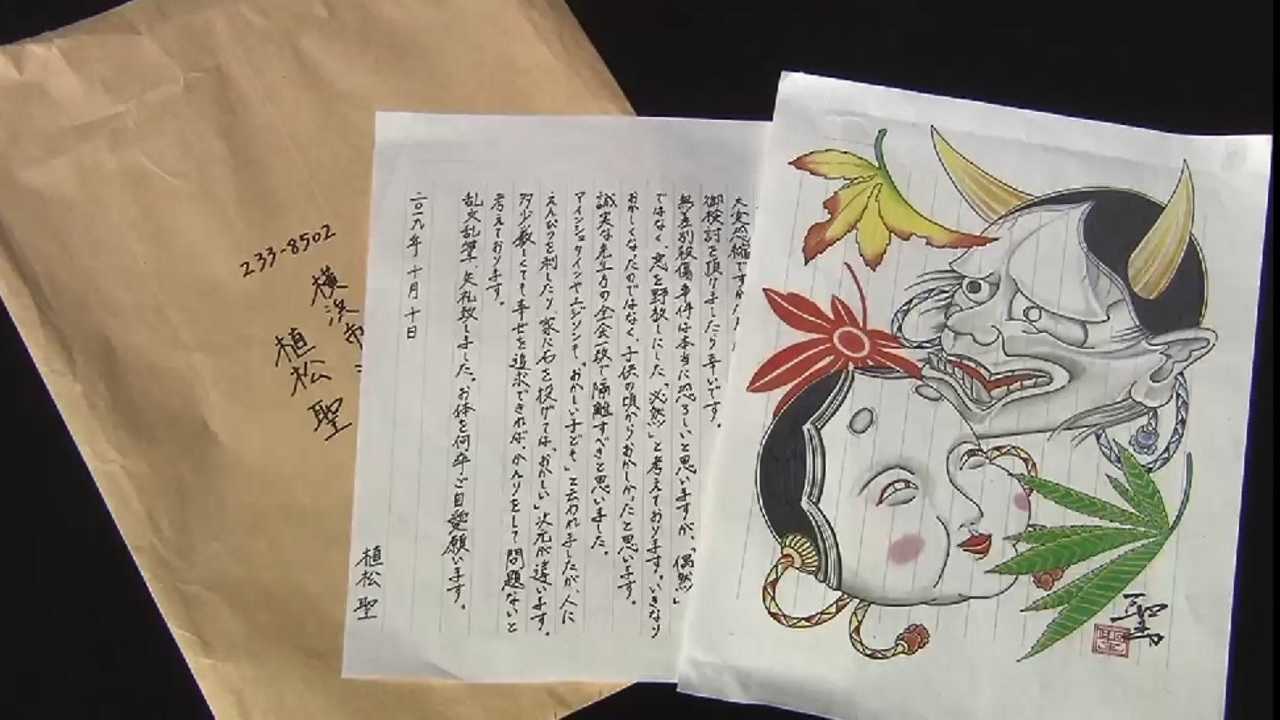 233-8502
横浜市
植松 聖
大変恐縮ですが
御検討を頂けましたら幸いです。
無差別殺傷事件は本当に恐ろしいと思いますが、「偶然」
ではなく、悪を野放しにした「必然」と考えております。いきなり
おかしくなったのではなく、子供の頃からおかしかったと思います。
誠実な先生方の全会一致で隔離すべきと思いました。
アインシュタインやエジソンも「おかしい子ども」と云われましたが、人に
えんぴつを刺したり家に石を投げては、「おかしい」次元が違います。
多少貧しくても幸せを追求できれば、かんりをして問題ないと
考えております。
乱文乱筆、失礼致しました。お体を何卒ご自愛願います。
二〇一九年 十月 十日
植松 聖
聖